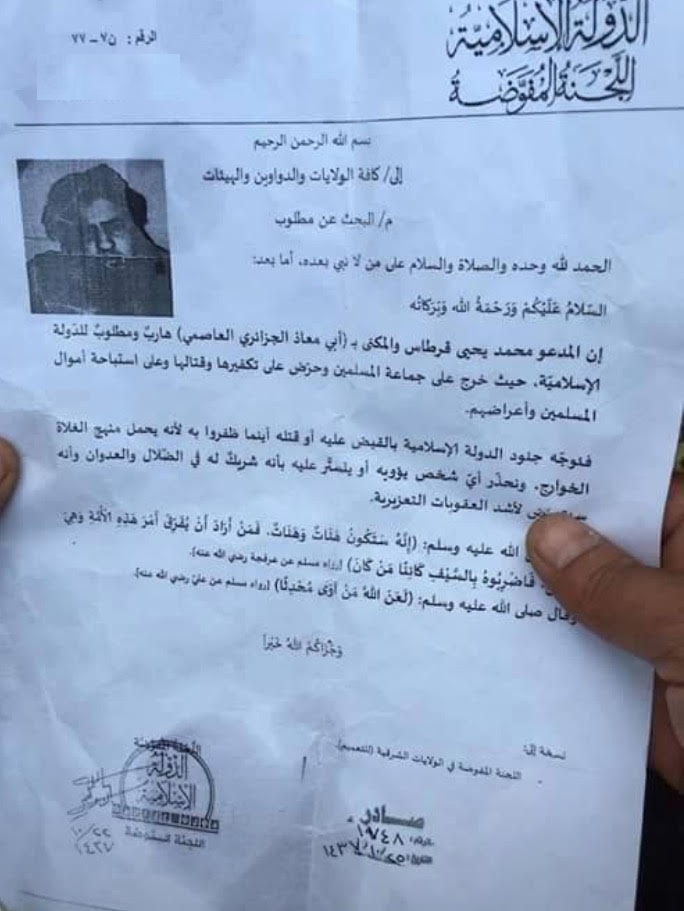 الدولة الإسلامية
اللجنة المفوضة
الرقم: ن٧-٧٧
بسم الله الرحمن الرحيم
إلى/ كافة الولايات والدواوين والهيئات
م/ البحث عن مطلوب
الحمد لله وحده والصلاة والسلام على من لا نبي بعده، أما بعد:
السَّلامُ عَلَيْكُمْ وَرَحْمَةُ الله وَبَرَكَاتُه
إن المدعو محمد يحيى قرطاس والمكنى بـ (أبي معاذ الجزائري العاصمي) هاربٌ ومطلوبٌ للدولة
الإسلاميّة، حيث خرج على جماعة المسلمين وحرّض على تكفيرها وقتالها وعلى استباحة أموال
المسلمين وأعراضهم.
فنوجّه جنود الدولة الإسلامية بالقبض عليه أو قتله أينما ظفروا به لأنه يحمل منهج الغلاة
الخوارج، ونحذّر أيّ شخص يؤويه أو يتستّر عليه بأنه شريكٌ له في الضّلال والعدوان وأنه
لأشد العقوبات التعزيرية.
الله عليه وسلم: (إِنَّهُ سَتَكُونُ هَنَاتٌ وَهَنَاتٌ، فَمَنْ أَرَادَ أَنْ يُفَرِّقَ أَمْرَ هَذِهِ الْأُمَّةِ وَهِيَ
فَاضْرِبُوهُ بِالسَّيْفِ كَائِنًا مَنْ كَانَ) [رواه مسلم عن عرفجة رضي الله عنه].
وقال صلى الله عليه وسلم: (لَعَنَ اللهُ مَنْ آوَى مُحْدِثًا) [رواه مسلم عن عليّ رضي الله عنه].
وَجَزَاكُمُ اللهُ خَيْراً
نسخة إلى:
اللجنة المفوضة في الولايات الشرقية (للتعميم).
اللجنة المفوضة
الدولة
الإسلامية
اللجنة المفوضة
١٠/٢٢
١٤٣٧
صادر